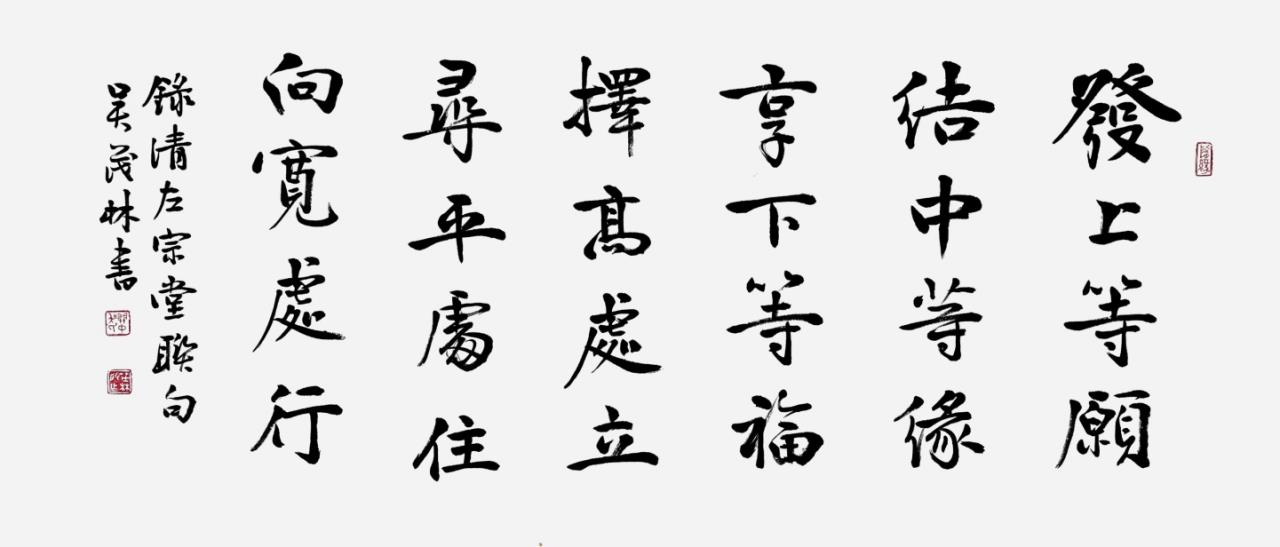 發上等願
结中等緣
享下等福
擇高處立
尋平處住
向寬處行
錄清左宗堂聯句
吴茂林書